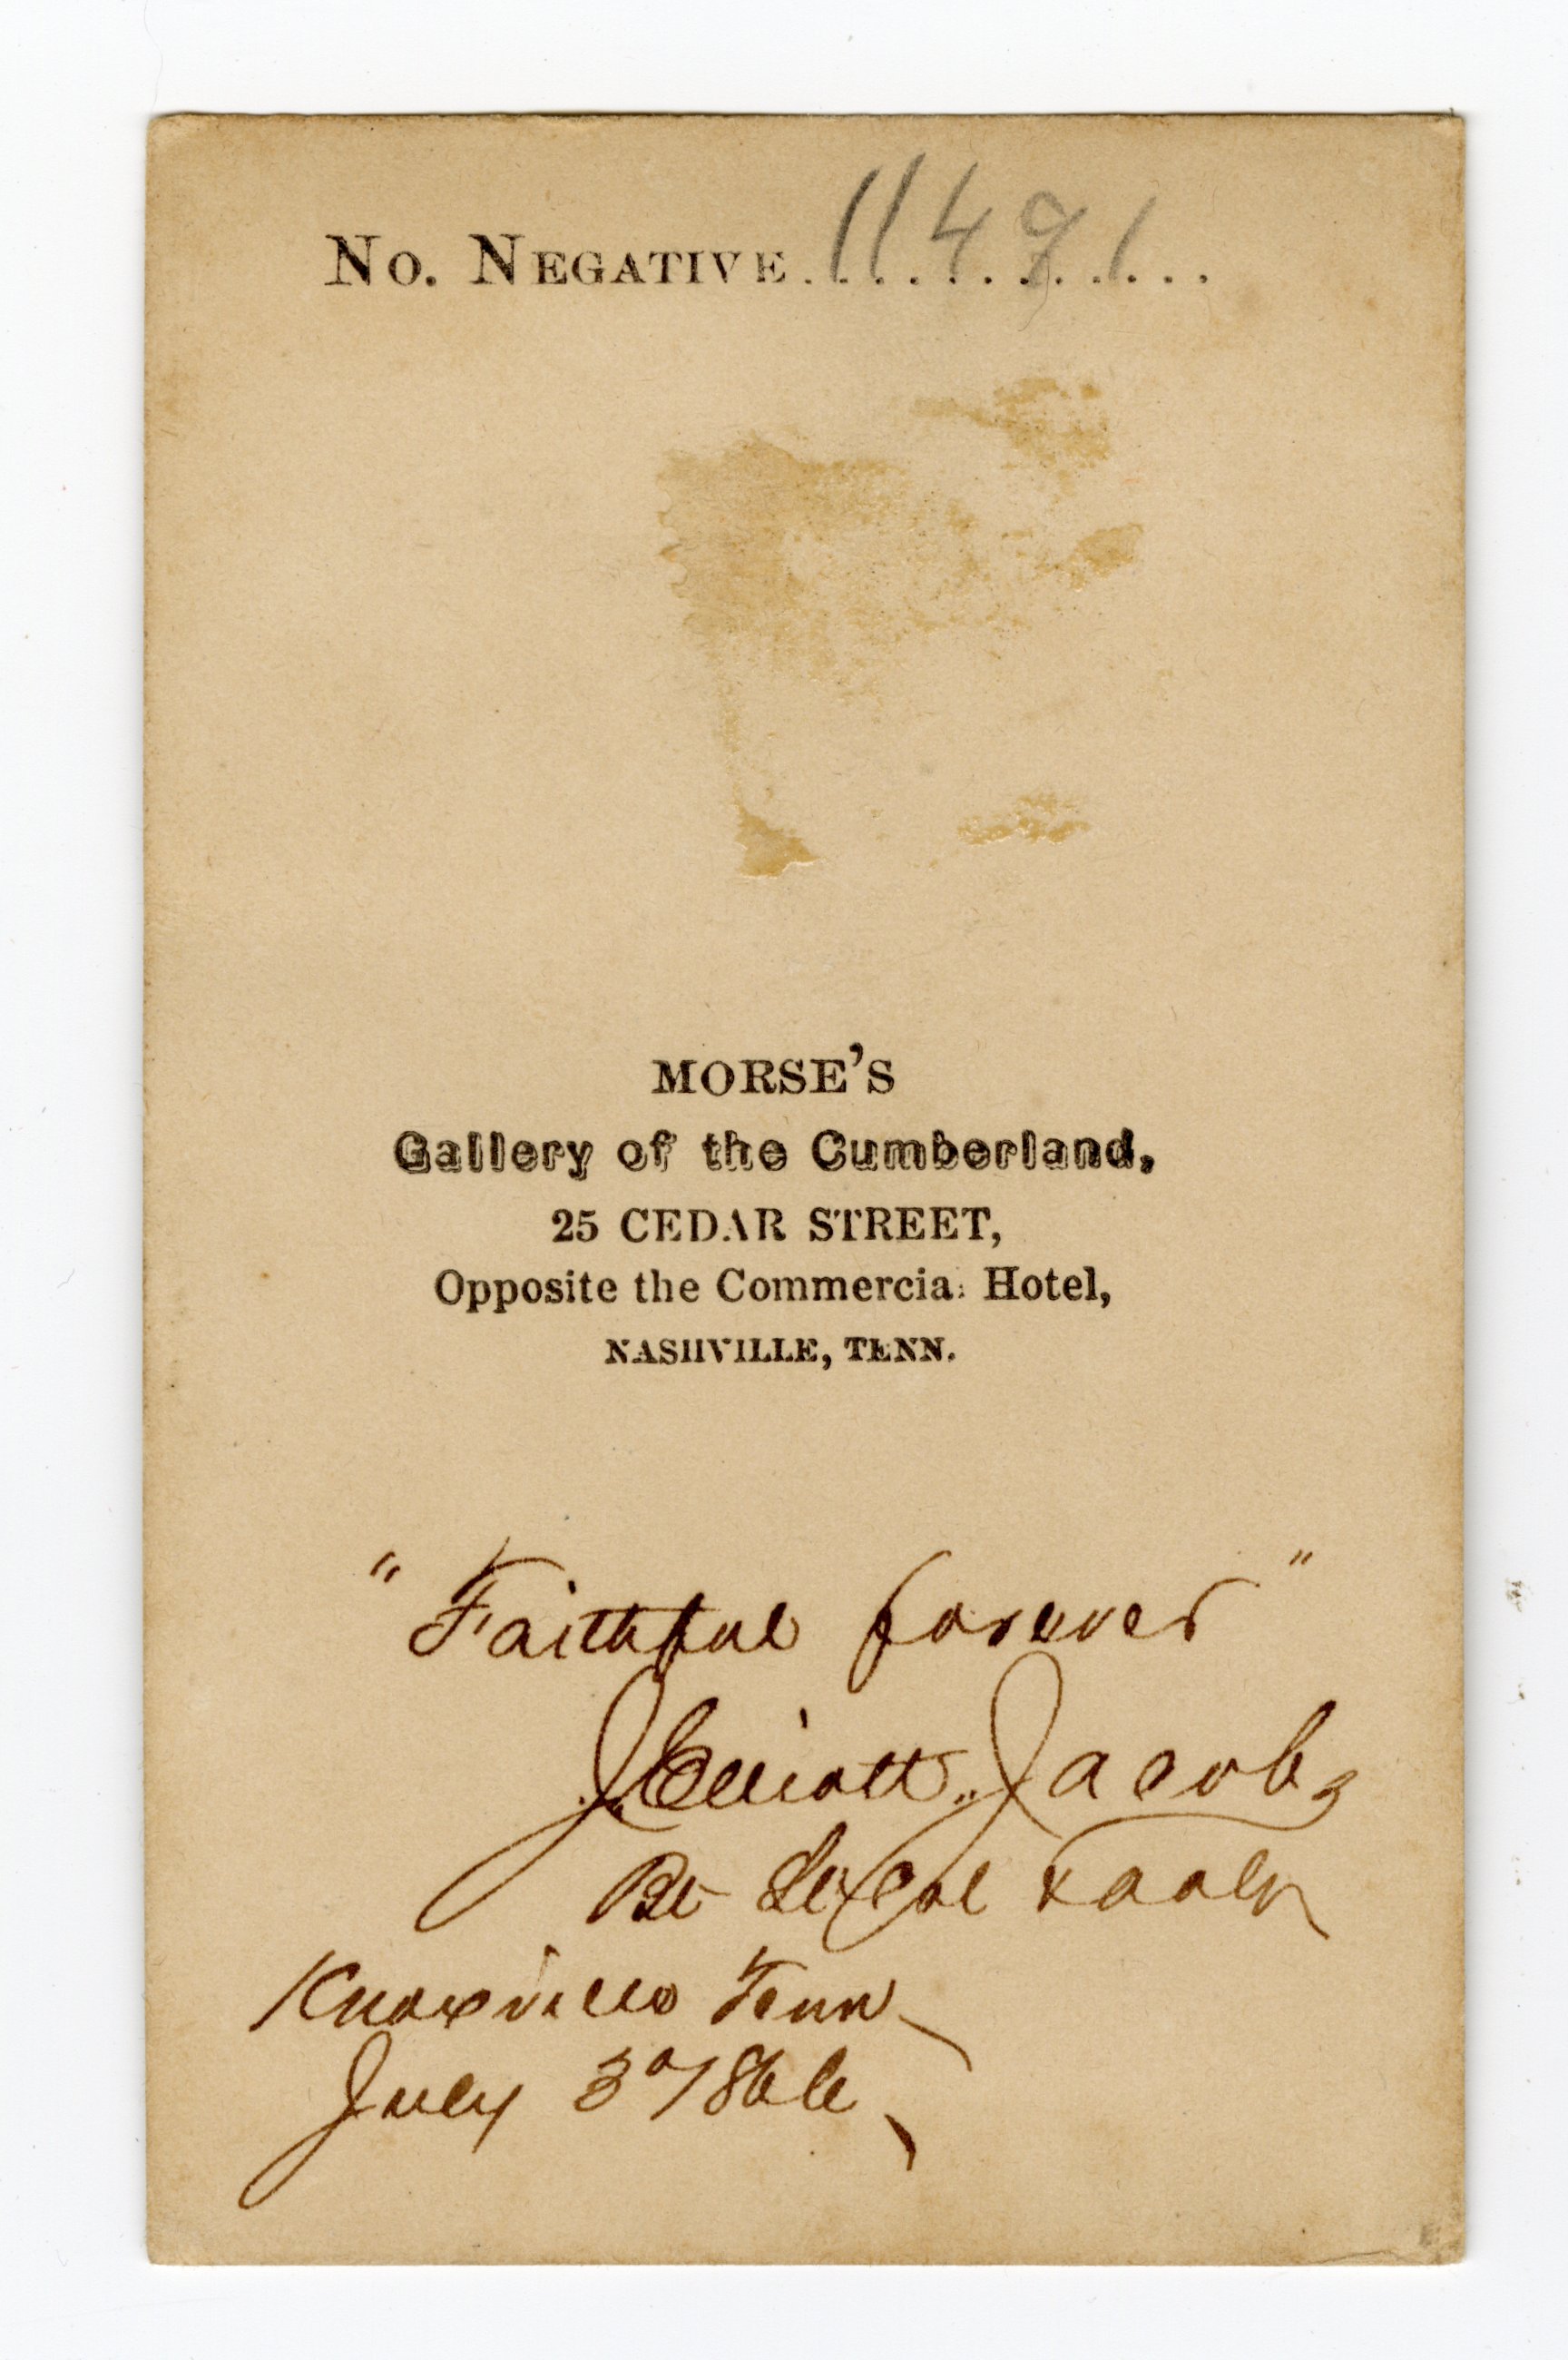 No. NEGATIVE 11491
MORSE'S
Gallery of the Cumberland,
25 CEDAR STREET,
Opposite the Commercial Hotel,
NASHVILLE, TENN.
"Faithful forever"
J. Elliott Jacobs
Bt
Knoxville Tenn
July 3d 1866